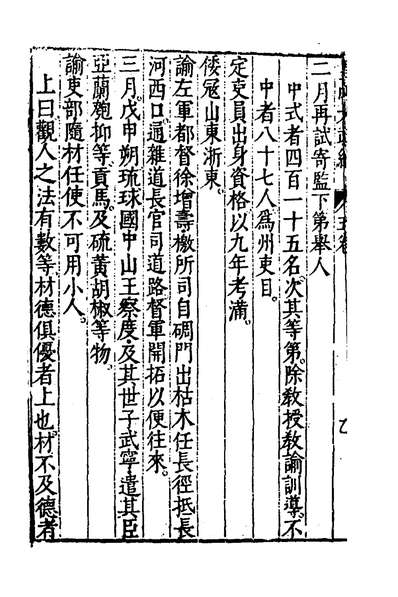 二月再試寄監下第舉人
中式者四百一十五名次其等第除敎授敎諭訓導不
中者八十七人爲州吏目
定吏員出身資格以九年考滿
倭寇山東浙東
諭左軍都督徐增壽檄所司自碉門出枯木任長徑抵長
河西口通雜道長官司道路督軍開拓以便往來
三月戊申朔琉球國中山王察度及其世子武寧遣其臣
亞蘭匏抑等貢馬及硫黃胡椒等物
諭吏部隨材任使不可用小人
上曰觀人之法有數等材德俱優者上也材不及德者